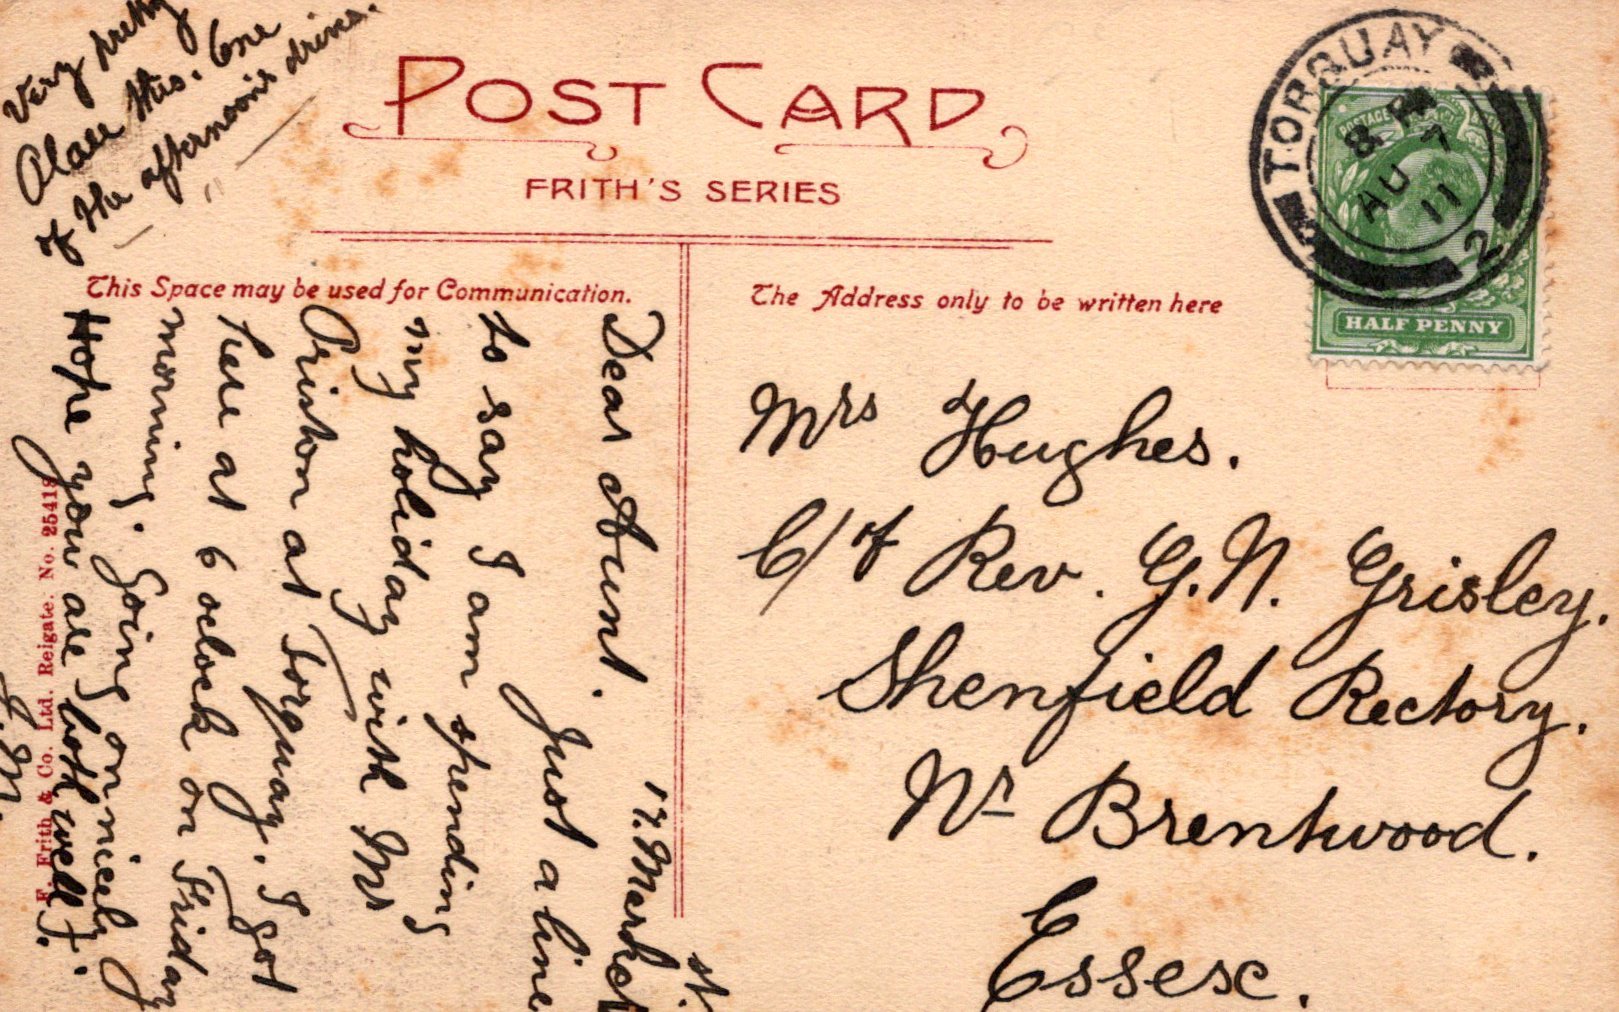 Very pretty
Place this. One
of the afternoon's drives.
POST CARD
FRITH'S SERIES
This Space may be used for Communication.
The Address only to be written here
TORQUAY
8 PM
AU 7
11
2
POSTAGE
HALF PENNY
Mrs Hughes.
C/of Rev. G. N. Grisley.
Shenfield Rectory.
Nr Brentwood.
Essex.
17. Market
st.
Dear Aunt. Just a line
to say I am spending
my holiday with Mrs
Priston at Torquay. I got
here at 6 oclock on Friday
morning. Going on nicely
Hope you are both well
F. Frith & Co. Ltd. Reigate. No. 25418